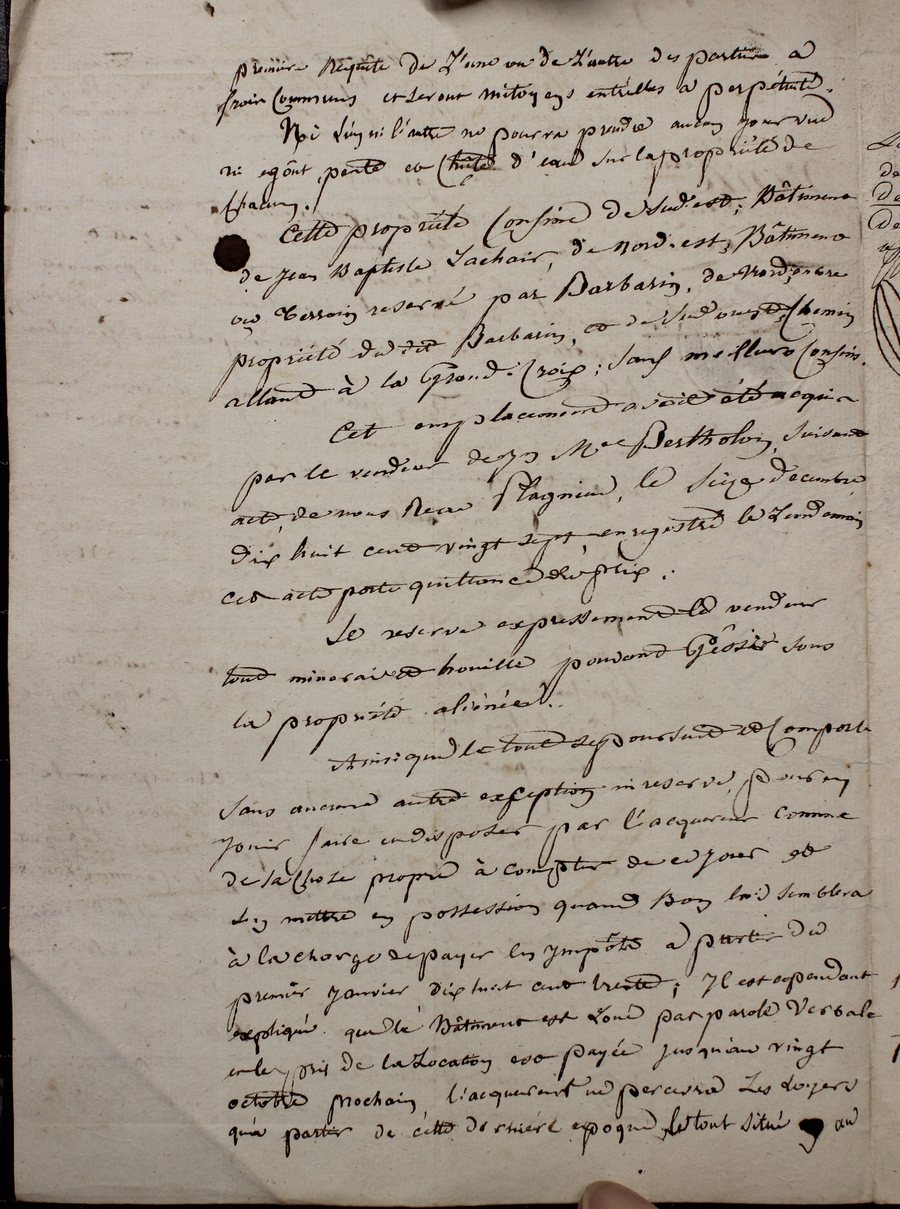 première Requête de L'une ou de L'autre des parties à
frais Communs et seront mitoyens entr'elles a perpétuité.
Ni L'un ni l'autre ne pourra prendre aucun jour vue
ni egôut, pente et Chûte d'eau sur la propriété de
Chacun.
Cette propriété Confine de sud'est, Bâtiment
de Jean Baptiste Lachair, de nord-est, Bâtiment
ou Terrain reservé par Barbarin, de nord, autre
propriété du dit Barbarin, et de sud'ouest, Chemin
allant à la Grand-Croix; sauf meilleurs Confins
Cet emplacement avoit été acquis
par le vendeur de Sr Bertholon, suivant
acte de nous Plagnieu, le seize decembre
dix huit cent vingt sept enregistré le Lendemain
cet acte porte quittance du prix.
Se reserve expressement le vendeur
tout minerai et houille pouvant Gésir sous
la propriété aliénée.
Ainsi que le tout se poursuit et Comporte
sans aucune autre exception ni reserve, pour en
Jouir faire et disposer par l'acquereur comme
de sa Chose propre à compter de ce jour et
s'en mettre en possession quand Bon lui semblera
à la charge de payer les Impôts a partir du
premier Janvier dix huit cent trente; Il est cependant
expliqué que le Bâtiment est Loué par parole Verbale
et le prix de la Location est payée jusqu'au vingt
octobre prochain l'acquereur ne percevra Les Loyers
qu'a partir de cette derniére epoque, le tout situé au